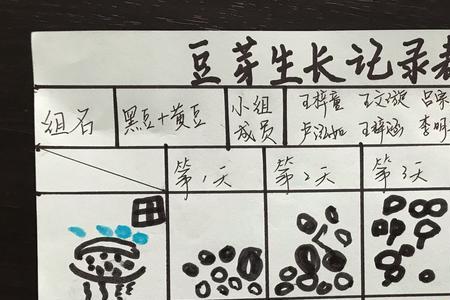 豆芽生长记录表
组名 黑豆+黄豆 小组成员 王梓童 王文璇 吕
卢泓如 王梓涵 李明
第1天 第2天 第3天